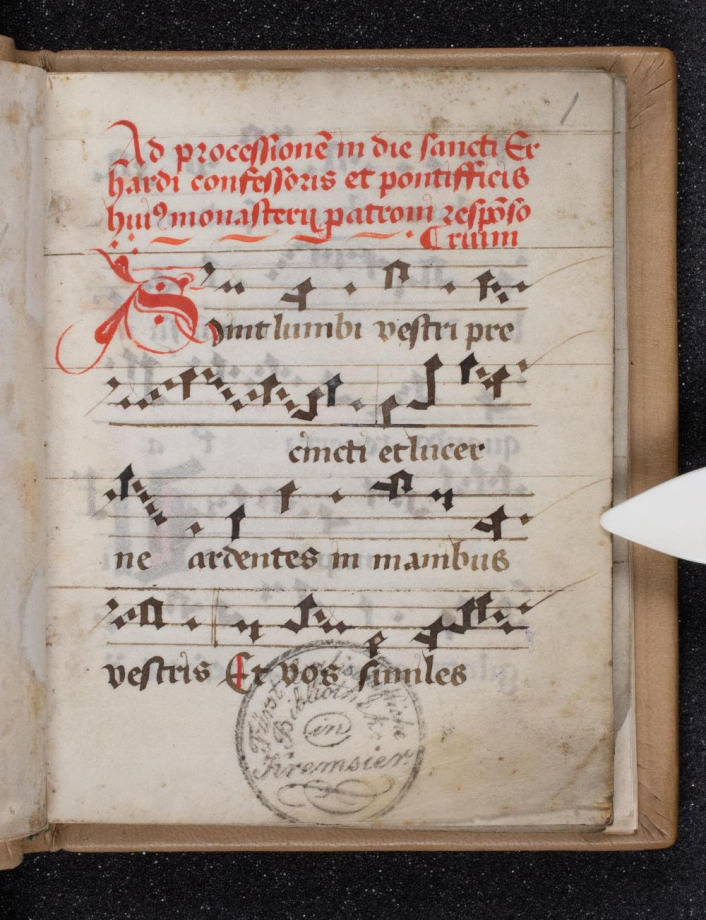 1
Ad processionē in die sancti Er
hardi confessoris et pontifficis
huiꝰ monasterij patroni respōso
rium
Sint lumbi vestri pre
cincti et lucer
ne ardentes in manibus
vestris Et vos similes
Fürsterzbischöfliche
Bibliothek
in
Kremsier